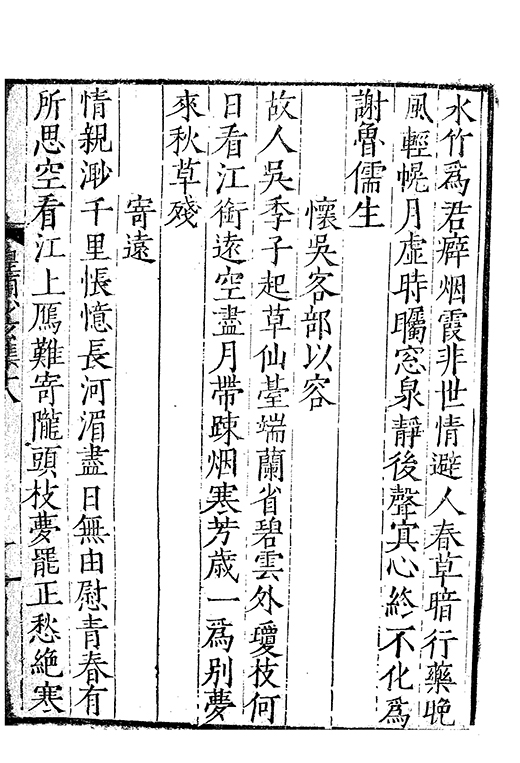 水竹爲君癖烟霞非世情避人春草暗行藥晚
風輕幌月虛時矚窓泉靜後聲寘心終不化爲
謝魯儒生
懷吳客部以容
故人吳季子起草仙臺端蘭省碧雲外瓊枝何
日看江銜遠空盡月帶踈烟寒芳歳一爲别夢
來秋草殘
寄遠
情親渺千里悵憶長河湄盡日無由慰青春有
所思空看江上鴈難寄隴頭枝夢罷正愁絶寒